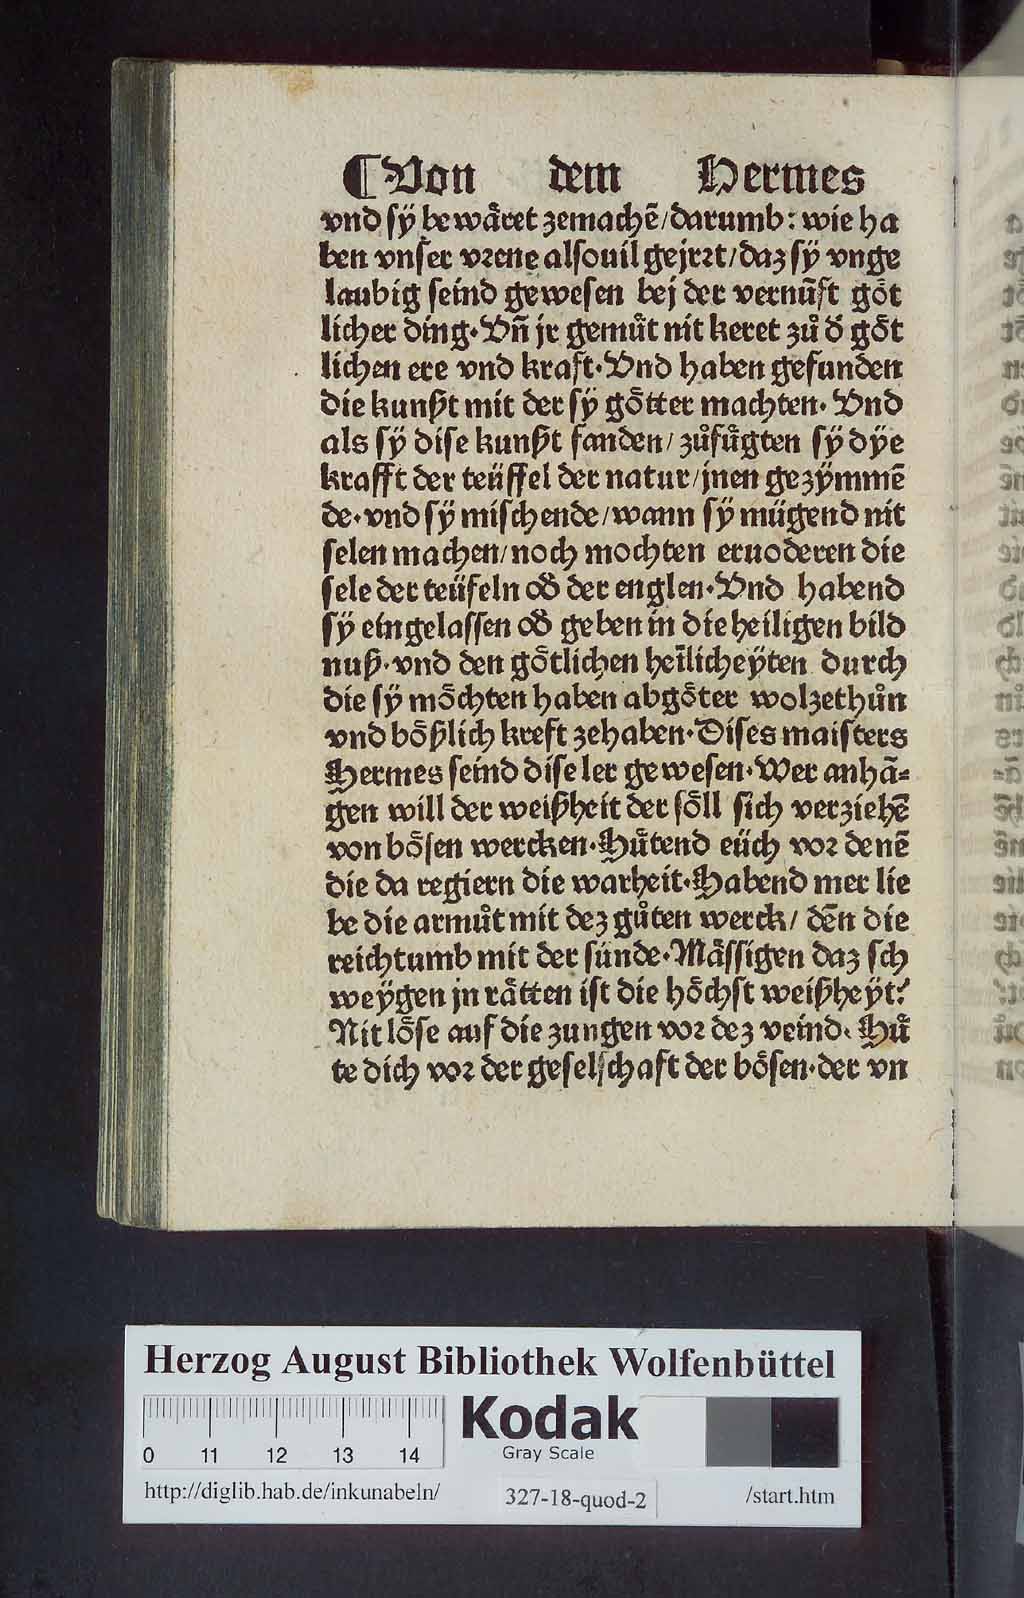 ⸿Von dem Hermes
vnd sÿ bewaͤret zemachē/darumb: wie ha
ben vnser vꝛene alsouil gejrꝛt/daz sÿ vnge
laubig seind gewesen bej der vernūft goͤt
licher ding. Vn̄ jr gemuͤt nit keret zuͦ d̄ goͤt
lichen ere vnd kraft. Vnd haben gefunden
die kunßt mit der sÿ goͤtter machten. Vnd
als sÿ dise kunßt fanden/ zuͦfuͤgten sÿ dÿe
krafft der teüffel der natur/jnen gezÿmmē
de. vnd sÿ mischende/wann sÿ mügend nit
selen machen/noch mochten eruoderen die
sele der teüfeln od̄ der englen. Vnd habend
sÿ eingelassen od̄ geben in die heiligen bild
nuß. vnd den goͤtlichen heīlicheÿten durch
die sÿ moͤchten haben abgoͤter wolzethuͦn
vnd boͤßlich kreft zehaben. Dises maisters
Hermes seind dise ler gewesen. Wer anhā⸗
gen will der weißheit der soͤll sich verziehē
von boͤsen wercken. Huͤtend eüch voꝛ denē
die da regiern die warheit. Habend mer lie
be die armuͦt mit dez guͦten werck/ dēn die
reichtumb mit der sünde. Maͤssigen daz sch
weÿgen jn raͤtten ist die hoͤchst weißheÿt:
Nit loͤse auf die zungen voꝛ dez veind. Huͤ
te dich voꝛ der geselschaft der boͤsen. der vn
Herzog August Bibliothek Wolfenbüttel
0 11 12 13 14
Kodak
Gray Scale
http://diglib.hab.de/inkunabeln/ 327-18-quod-2 /start.htm